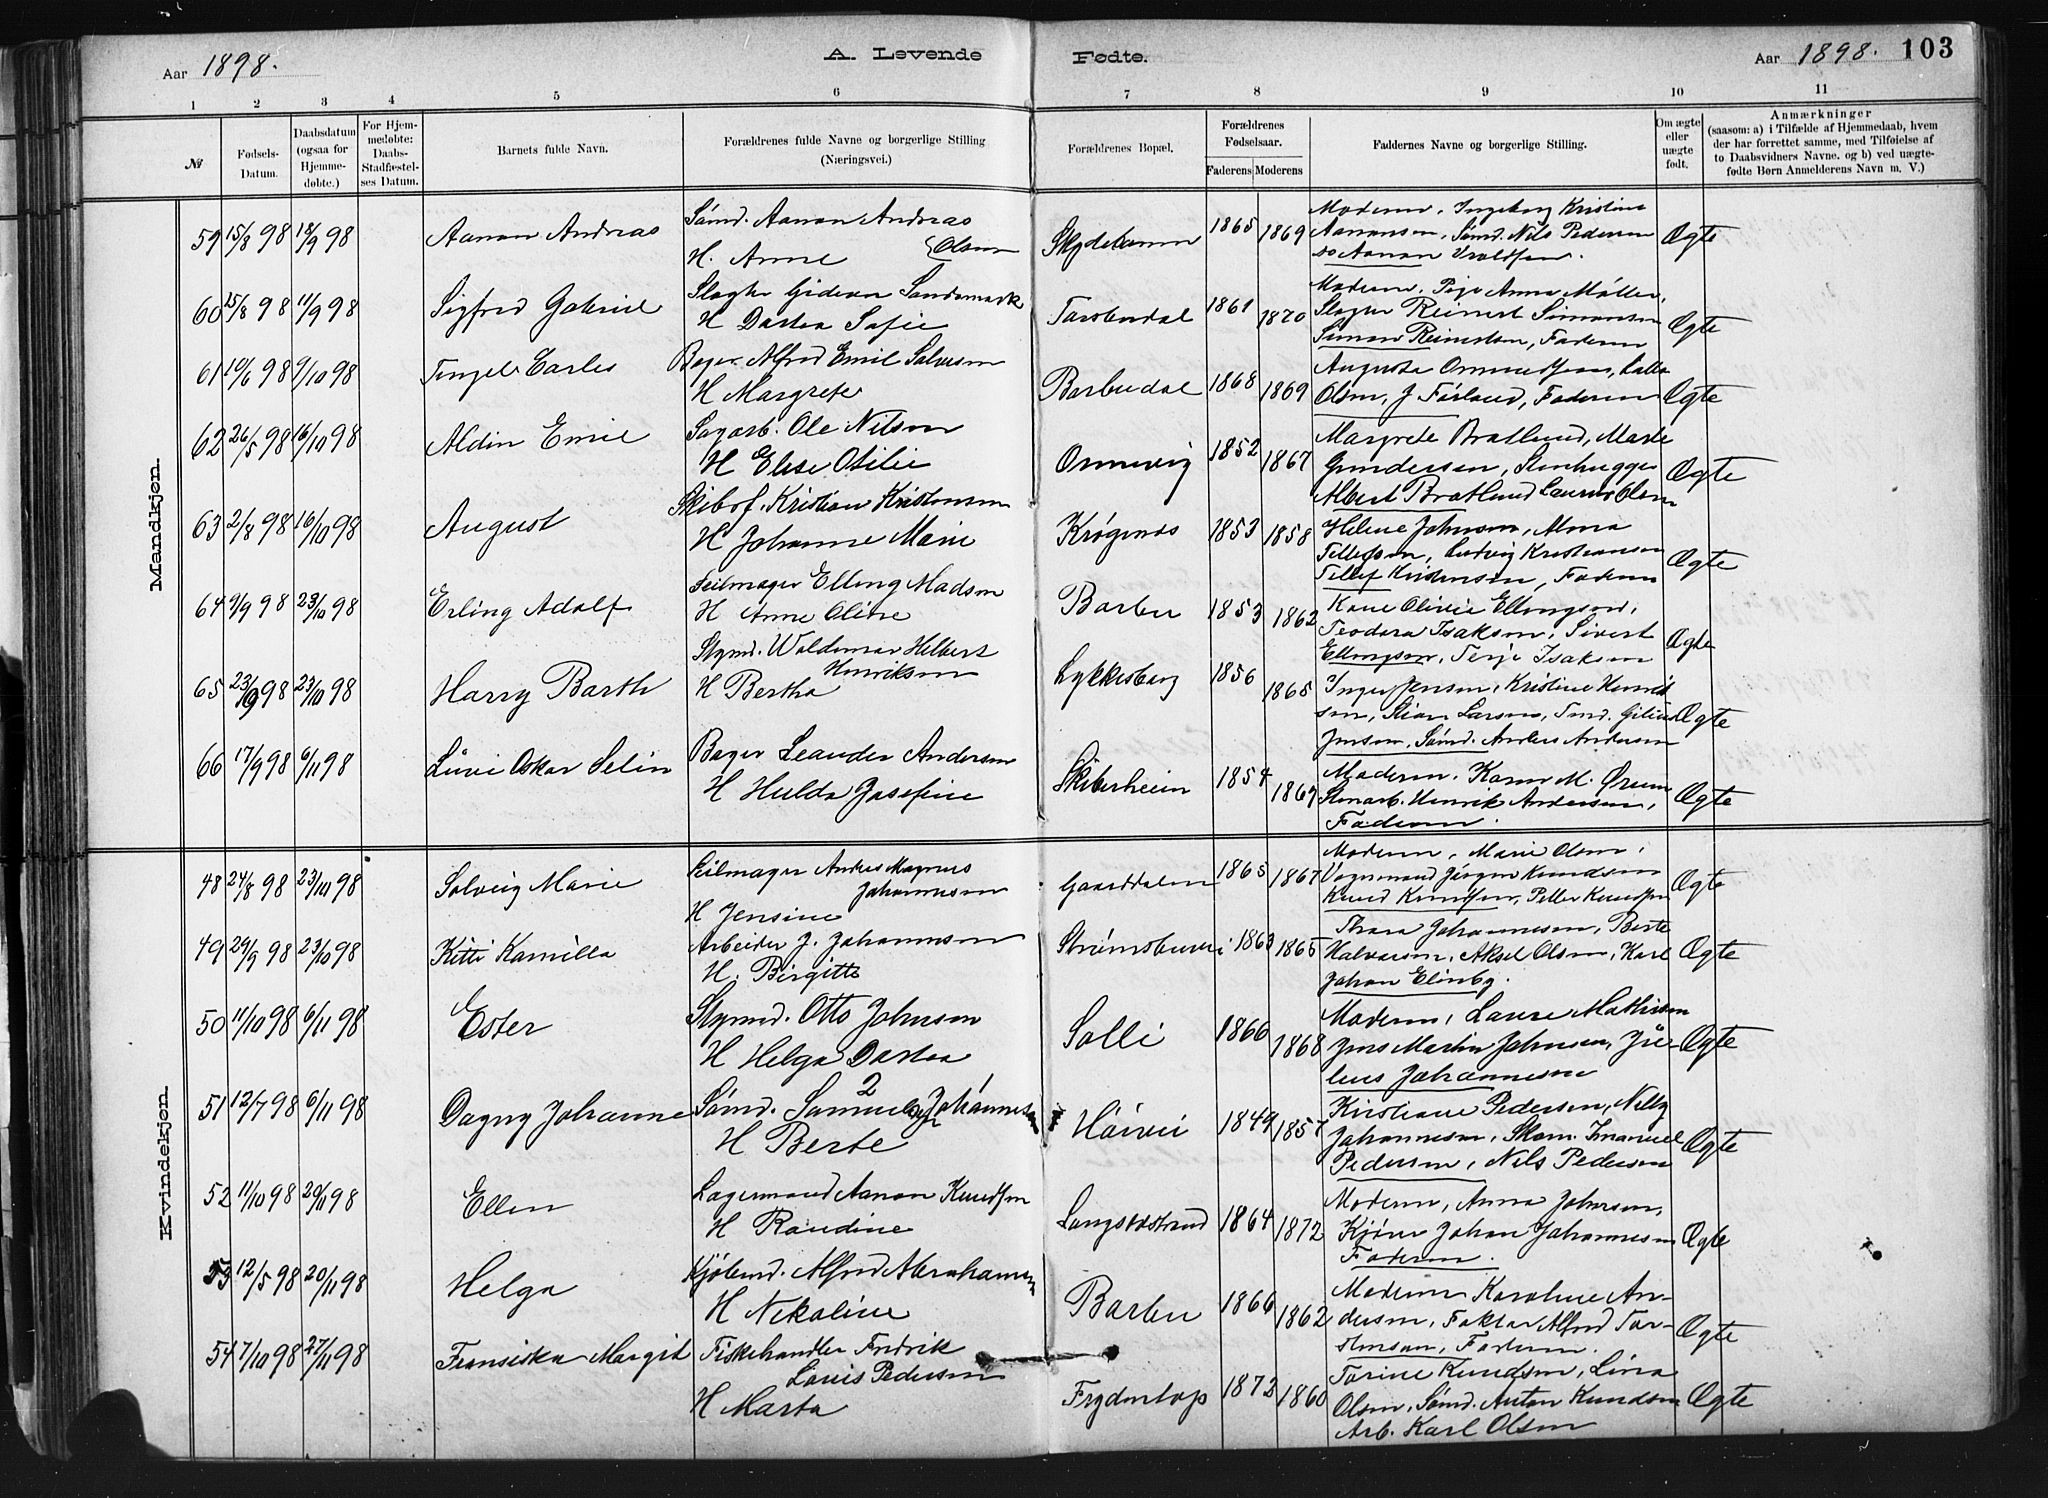 Aar 1898.
A. Levende Fødte.
Aar 1898. 103
1 2 3 4 5 6 7 8 9 10 11
№
Fødsels-Datum.
Daabsdatum (ogsaa for Hjemme-døbte.)
For Hjem-medøbte: Daabs-Stadfæstel-ses Datum.
Barnets fulde Navn.
Forældrenes fulde Navne og borgerlige Stilling (Næringsvei.)
Forældrenes Bopæl.
Forældrenes Fødselsaar.
Faderens Moderens
Faddernes Navne og borgerlige Stilling.
Om ægte eller uægte født.
Anmærkninger
(saasom: a) i Tilfælde af Hjemmedaab, hvem
der har forrettet samme, med Tilføielse af
to Daabsvidners Navne. og b) ved uægte-
fødte Børn Anmelderens Navn m. V.)
Mandkjøn.
59 15/8 98 18/9 98 Aanon Andreas
Sømd. Aanon Andreas Olsen
H. Anne
1865 1869
Moderen, Ingeborg Kristine
Aanonsen, Sømd. Nils Pedersen
Ægte
60 15/8 98 11/9 98 Sigfred Gabriel
Slagter Gideon Sandsmark
H Dortea Sofie
Torsbudal 1861 1870
Moderen, Pige Anna Møller,
Slagter Reinert Simonsen
Simon Reinertsen, Faderen
Ægte
61 10/6 98 9/10 98 Tingel Carles
Bager Alfred Emil Salvesen
H Margrete
Barbudal 1868 1869
Augusta Ommundsen, Lalla
Olsen, J Førland, Faderen
Ægte
62 26/5 98 16/10 98 Aldin Emil
Sagarb. Ole Nilsen
H Elise Otilie
Ommevig 1852 1867
Margrete Bratlund, Marte
Gundersen, Stenhugger
Albert Bratlund Laurits Olsen
Ægte
63 2/8 98 16/10 98 August
Skibsf. Kristian Kristensen
H Johanne Marie
Krøgenes 1853 1858
Helene Johnsen, Alma
Tellefsen, Ludvig Kristiansen
Tellef Kristensen, Faderen
Ægte
64 9/9 98 23/10 98 Erling Adolf
Seilmager Elling Madsen
H Anne Oline
Barbu 1853 1862
Kone Olivie Ellingsen,
Teodora Isaksen, Sivert
Ellingsen, Terje Isaksen
Ægte
65 23/9 98 23/10 98 Harry Barth
Stymd. Waldemar Helbert
Henriksen
H Bertha
Lykkesborg 1856 1865
Inger Jensen, Kristine Henrik
sen, Stian Larsen, Tmd. Gilius
Jensen, Sømd. Anders Andersen
Ægte
66 17/9 98 6/11 98 Livi Oskar Selin
Bager Leander Andersen
H Hulda Josefine
Skiberheim 1854 1867
Moderen, Karen M. Ørum
Stenarb. Henrik Andersen,
Faderen.
Ægte
Kvindekjøn.
48 24/8 98 23/10 98 Solveig Marie
Seilmager Anders Magnus
Johannesen
H Jensine
Gaarddalen 1865 1867
Moderen, Marie Olsen,
Vognmand Jørgen Knudsen
Knud Knudsen, Peller Knudsen
Ægte
49 29/9 98 23/10 98 Kitti Kamilla
Arbeider J. Johannesen
H. Birgitte
Strømsbuvei 1863 1865
Thora Johannesen, Berte
Halvorsen, Aksel Olsen, Karl
Johan Elinby.
Ægte
50 11/10 98 6/11 98 Ester
Stymd. Otto Johnsen
H Helga Dortea
Solli 1866 1868
Moderen, Laura Mathisen
Jens Martin Johnsen, Ju-
lius Johannesen
Ægte
51 12/7 98 6/11 98 Dagny Johanne
Sømd. Samuel Johannesen
H Berte
Høivei 1849 1857
Kirstiane Pedersen, Nelly
Johannesen, Skom. Imanuel
Pedersen, Nils Pedersen
Ægte
52 11/10 98 20/11 98 Ellen
Lagermand Aanon Knudsen
H Randine
Langsæstrand 1864 1872
Moderen, Anna Johnsen,
Johan Johannesen
Faderen.
Ægte
53 12/5 98 20/11 98 Helga
Kjøbmd. Alfred Abrahamsen
H Nekoline
Barbu 1866 1862
Moderen Karoline An-
dersen, Faktor Alfred Tor-
stensen, Faderen.
Ægte
54 7/10 98 27/11 98 Fransiska Margit
Fiskehandler Fredrik
Louis Pedersen
H Marta
Frydentop 1872 1860
Torine Knudsen, Lina
Olsen, Sømd. Anton Knudsen
Arb. Karl Olsen
Ægte